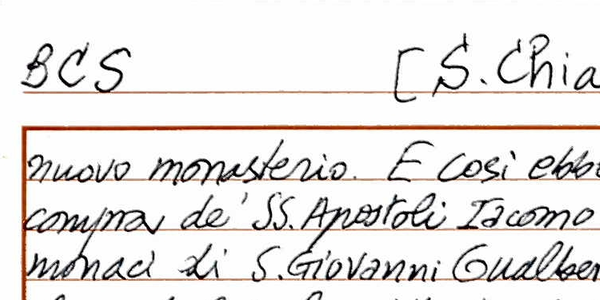 BCS [S. Chia
nuovo monasterio. E così ebb
compra de' SS. Apostoli Iacomo
monaci di S. Giovanni Gualber